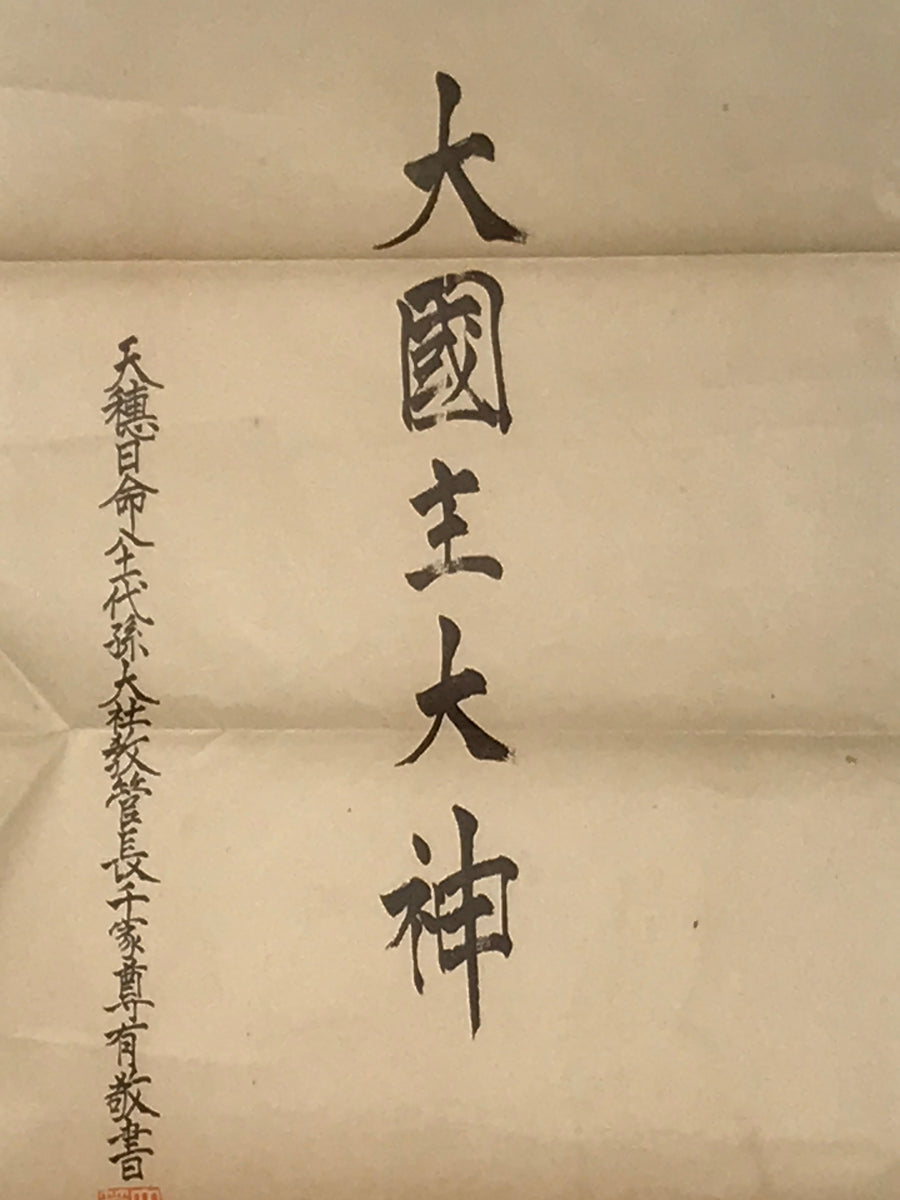 大國主大神
天穂日命八十一代孫大社教管長千家尊有敬書